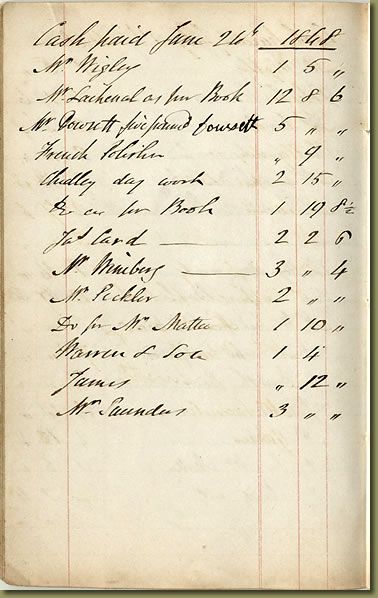 Cash paid June 24th 1848
Mr Wigley 1 5 "
Mr Lachenal as per Book 12 8 6
Mr Dowsett five pound Dowsett 5 " "
French Polisher " 9 "
Chidley day work 2 15 "
Do as per Book 1 19 8½
Jas Card — 2 2 6
Mr Nineberg — 3 " 4
Mr Peckler 2 " "
Do for Mr Mattea 1 10 "
Warren & Son 1 4
James " 12 "
Mr Saunders 3 " "